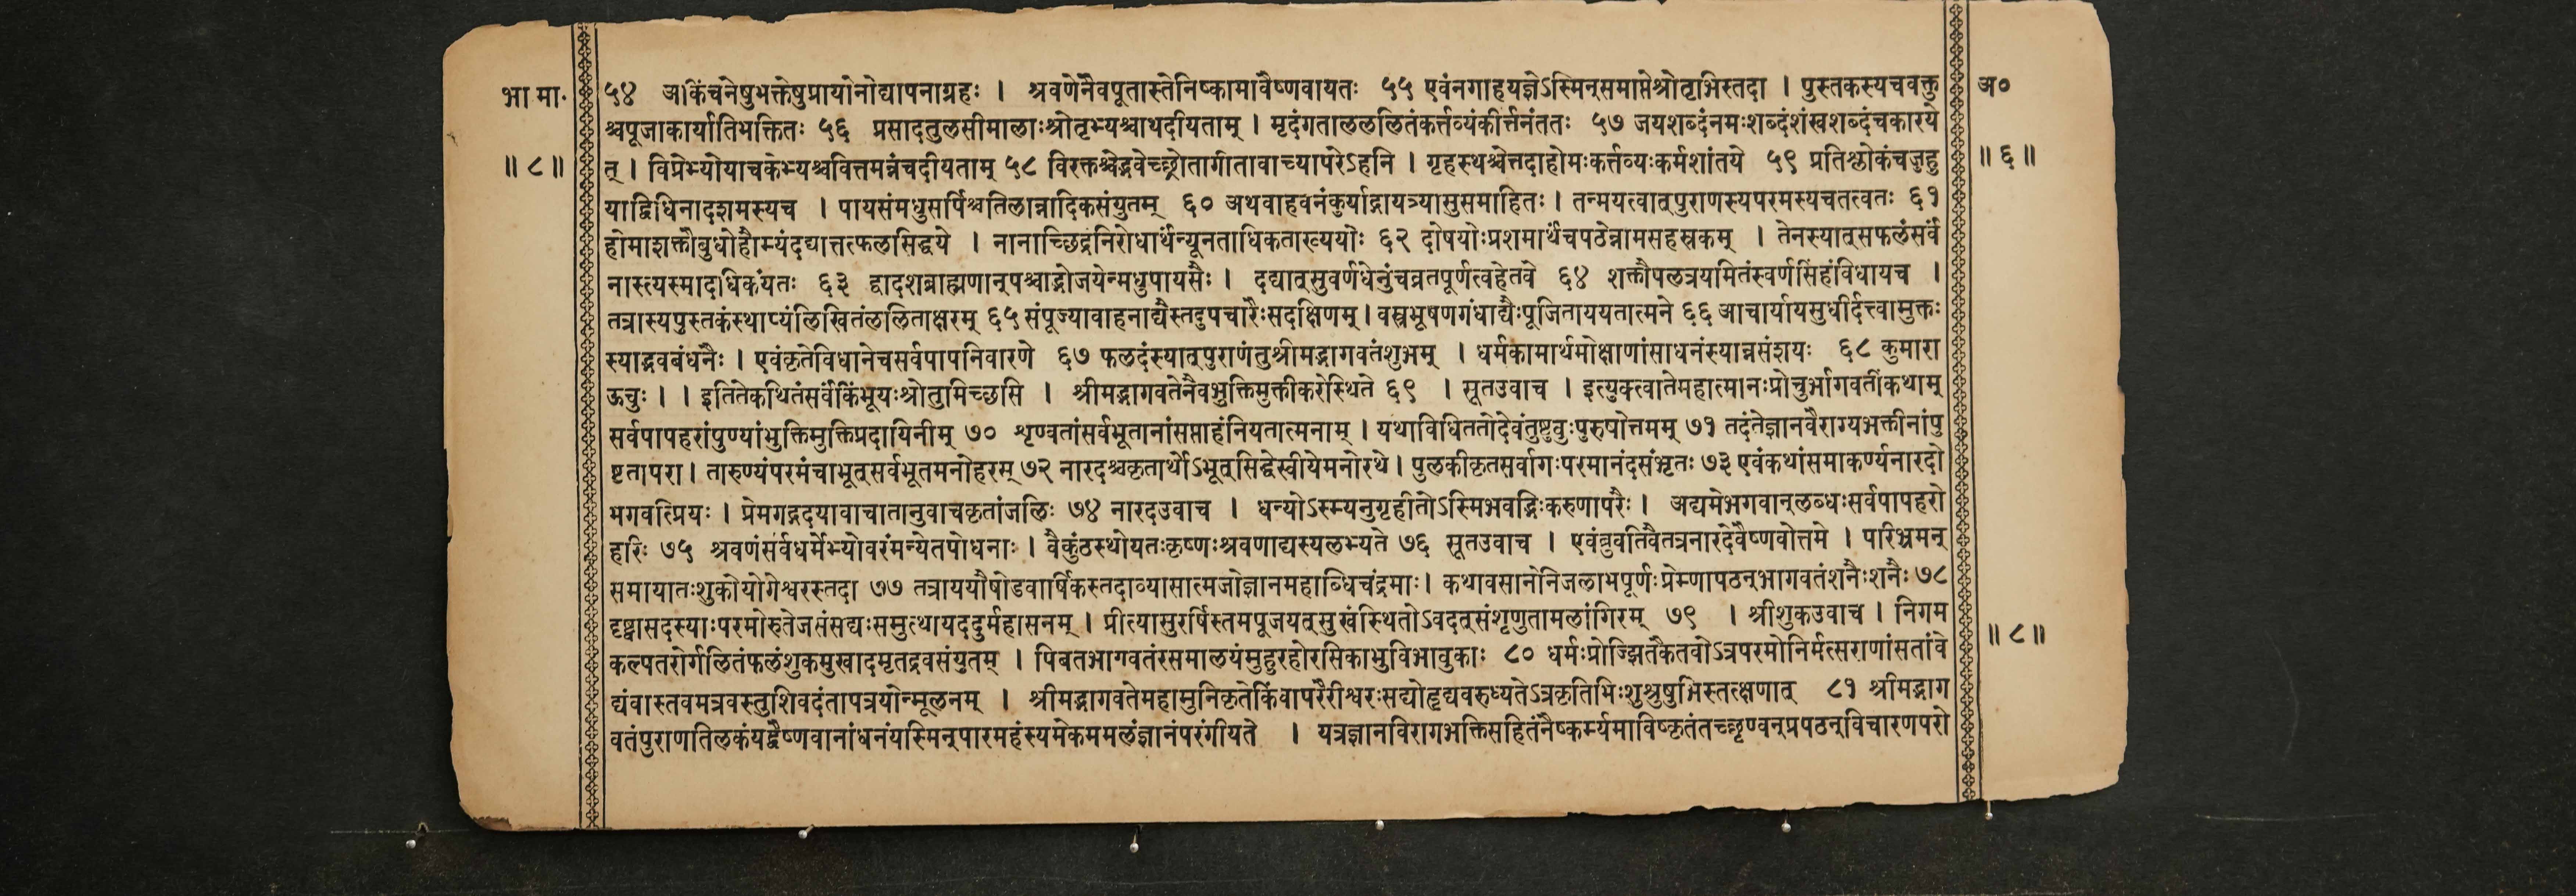 भा मा॰
॥ ८ ॥
५४ अकिंचनेषुभक्तेषुप्रायोनोद्यापनाग्रहः । श्रवणेनैवपूतास्तेनिष्कामावैष्णवायतः ५५ एवंनगाहयज्ञेऽस्मिन्समाप्तेश्रोतृभिस्तदा । पुस्तकस्यचवक्तु
श्चपूजाकार्यातिभक्तितः ५६ प्रसादतुलसीमालाःश्रोतृभ्यश्चाथदीयताम् । मृदंगतालललितंकर्त्तव्यंकीर्त्तनंततः ५७ जयशब्दंनमःशब्दंशंखशब्दंचकारये
त् । विप्रेभ्योयाचकेभ्यश्चवित्तमन्नंचदीयताम् ५८ विरक्तश्चेद्भवेच्छ्रोतागीतावाच्यापरेऽहनि । गृहस्थश्चेत्तदाहोमःकर्त्तव्यःकर्मशांतये ५९ प्रतिश्लोकंचजुहु
याद्विधिनादशमस्यच । पायसंमधुसर्पिश्चतिलान्नादिकसंयुतम् ६० अथवाहवनंकुर्याद्गायत्र्यासुसमाहितः । तन्मयत्वात्पुराणस्यपरमस्यचतत्वतः ६१
होमाशक्तौबुधोहौम्यंदद्यात्तत्फलसिद्धये । नानाच्छिद्रनिरोधार्थंन्यूनताधिकताख्ययोः ६२ दोषयोःप्रशमार्थंचपठेन्नामसहस्रकम् । तेनस्यात्सफलंसर्वं
नास्त्यस्मादधिकंयतः ६३ द्वादशब्राह्मणान्पश्चाद्भोजयेन्मधुपायसैः । दद्यात्सुवर्णधेनुंचव्रतपूर्णत्वहेतवे ६४ शक्तौपलत्रयमितंस्वर्णसिंहंविधायच ।
तत्रास्यपुस्तकंस्थाप्यंलिखितंललिताक्षरम् ६५ संपूज्यावाहनाद्यैस्तदुपचारैःसदक्षिणम् । वस्त्रभूषणगंधाद्यैःपूजिताययतात्मने ६६ आचार्यायसुधीर्दत्त्वामुक्तः
स्याद्भवबंधनैः । एवंकृतेविधानेचसर्वपापनिवारणे ६७ फलदंस्यात्पुराणंतुश्रीमद्भागवतंशुभम् । धर्मकामार्थमोक्षाणांसाधनंस्यान्नसंशयः ६८ कुमारा
ऊचुः । । इतितेकथितंसर्वंकिंभूयःश्रोतुमिच्छसि । श्रीमद्भागवतेनैवभुक्तिमुक्तीकरेस्थिते ६९ । सूतउवाच । इत्युक्त्वातेमहात्मानःप्रोचुर्भागवतींकथाम्
सर्वपापहरांपुण्यांभुक्तिमुक्तिप्रदायिनीम् ७० शृण्वतांसर्वभूतानांसप्ताहंनियतात्मनाम् । यथाविधिततोदेवंतुष्टुवुःपुरुषोत्तमम् ७१ तदंतेज्ञानवैराग्यभक्तीनांपु
ष्टतापरा । तारुण्यंपरमंचाभूत्सर्वभूतमनोहरम् ७२ नारदश्चकृतार्थोऽभूत्सिद्धेस्वीयेमनोरथे । पुलकीकृतसर्वांगःपरमानंदसंभृतः ७३ एवंकथांसमाकर्ण्यनारदो
भगवत्प्रियः । प्रेमगद्गदयावाचातानुवाचकृतांजलिः ७४ नारदउवाच । धन्योऽस्म्यनुगृहीतोऽस्मिभवद्भिःकरुणापरैः । अद्यमेभगवान्लब्धःसर्वपापहरो
हरिः ७५ श्रवणंसर्वधर्मेभ्योवरंमन्येतपोधनाः । वैकुंठस्थोयतःकृष्णःश्रवणाद्यस्यलभ्यते ७६ सूतउवाच । एवंब्रुवतिवैतत्रनारदेवैष्णवोत्तमे । परिभ्रमन्
समायातःशुकोयोगेश्वरस्तदा ७७ तत्राययौषोडवार्षिकस्तदाव्यासात्मजोज्ञानमहाब्धिचंद्रमाः । कथावसानेनिजलाभपूर्णःप्रेम्णापठन्भागवतंशनैःशनैः ७८
दृष्ट्वासदस्याःपरमोरुतेजसंसद्यःसमुत्थायददुर्महासनम् । प्रीत्यासुरर्षिस्तमपूजयत्सुखंस्थितोऽवदत्संशृणुतामलांगिरम् ७९ । श्रीशुकउवाच । निगम
कल्पतरोर्गलितंफलंशुकमुखादमृतद्रवसंयुतम् । पिबतभागवतंरसमालयंमुहुरहोरसिकाभुविभावुकाः ८० धर्मःप्रोज्झितकैतवोऽत्रपरमोनिर्मत्सराणांसतांवे
द्यंवास्तवमत्रवस्तुशिवदंतापत्रयोन्मूलनम् । श्रीमद्भागवतेमहामुनिकृतेकिंवापरैरीश्वरःसद्योहृद्यवरुध्यतेऽत्रकृतिभिःशुश्रुषुभिस्तत्क्षणात् ८१ श्रीमद्भाग
वतंपुराणतिलकंयद्वैष्णवानांधनंयस्मिन्पारमहंस्यमेकममलंज्ञानंपरंगीयते । यत्रज्ञानविरागभक्तिसहितंनैष्कर्म्यमाविष्कृतंतच्छृण्वन्प्रपठन्विचारणपरो
अ०
॥ ६ ॥
॥ ८ ॥